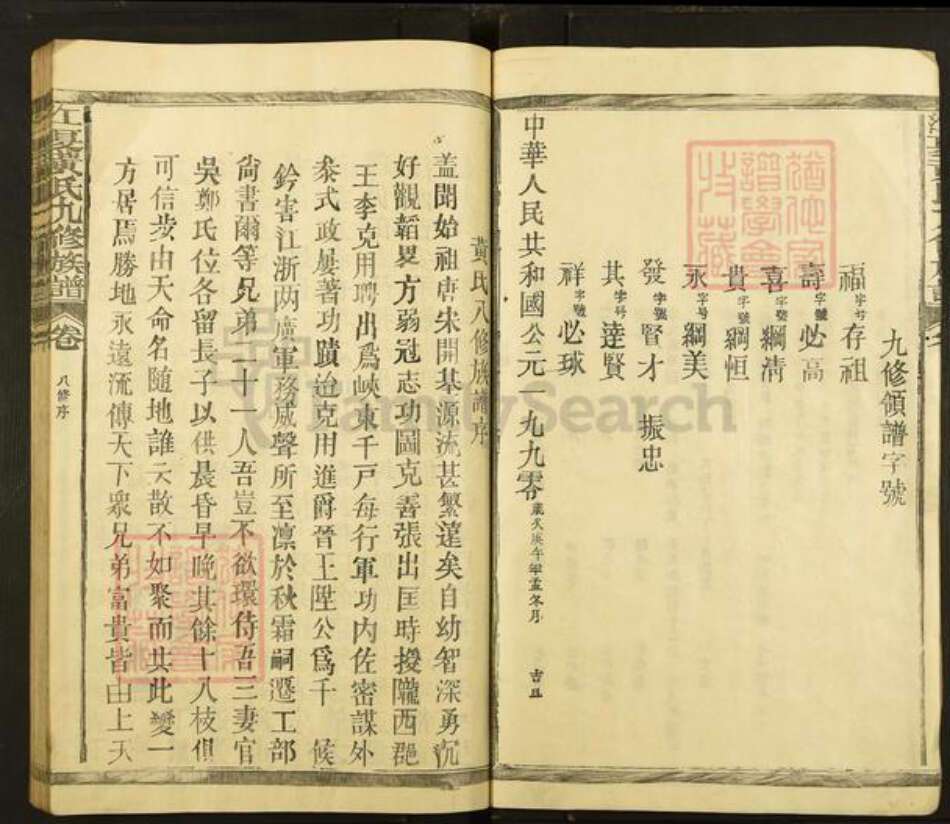 九修領譜字號
福字号存祖
壽字號必高
喜字號綱清
貴字號綱恒
永字号綱美
發字號賢才 振忠
其字号達賢
祥字號必球
中華人民共和國公元一九九零歲次庚午年孟冬月 吉旦
黃氏八修族譜序
蓋聞始祖唐宋開基源流甚繁蓬矣自幼智深勇沉
好觀韜畧方弱冠志功圖克善張出匡時授隴西郡
王李克用聘出為峽東千戸每行軍功内佐密謀外
泰式政屢著功蹟迨克用進爵晉王陞公為千 候
鈐害江浙两廣軍務威聲所至凛於秋霜嗣遷工部
尚書爾等兄弟二十一人吾豈不欲環侍吾三妻官
吳鄭氏位各留長子以供晨昏早晚其餘十八枝俱
可信步由天命名随地誰云散不如聚而共此變一
方居焉勝地永遠流傳天下衆兄弟富貴皆由上天
江夏黃氏九修族譜
卷
八修序
FamilySearch